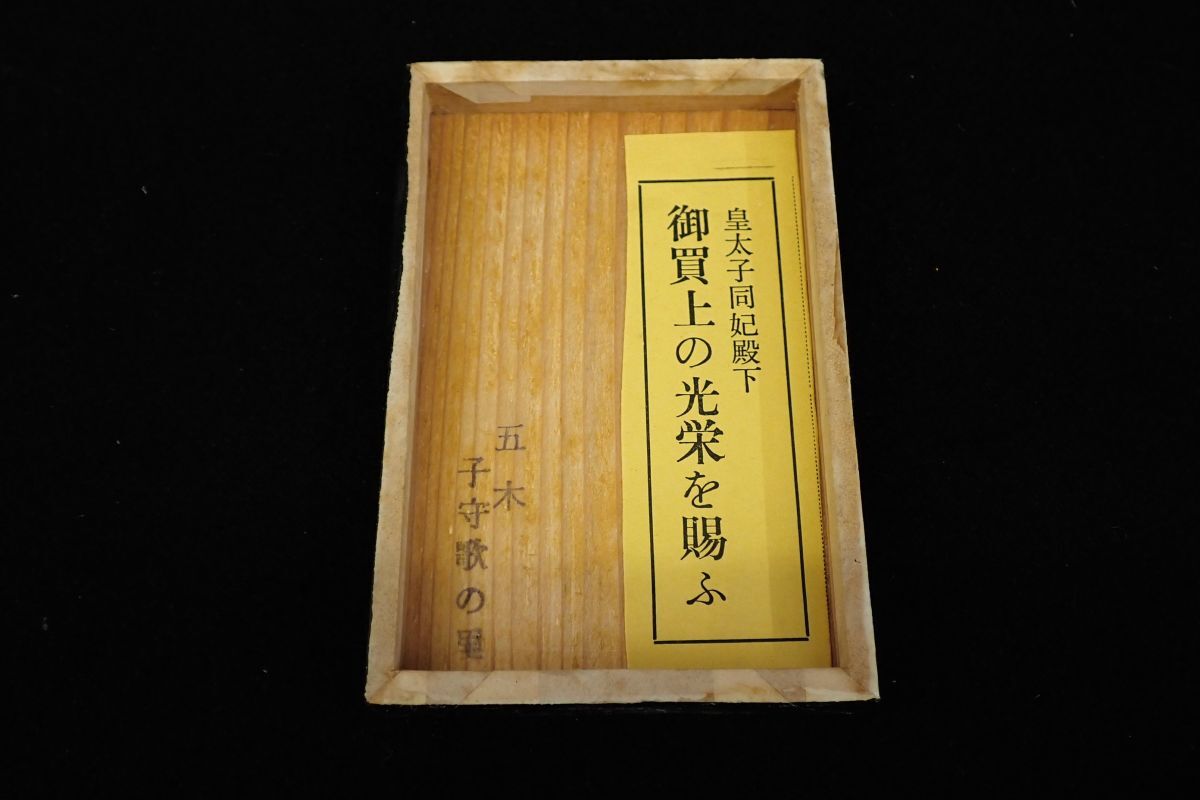 皇太子同妃殿下
御買上の光栄を賜ふ
五木
子守歌の里